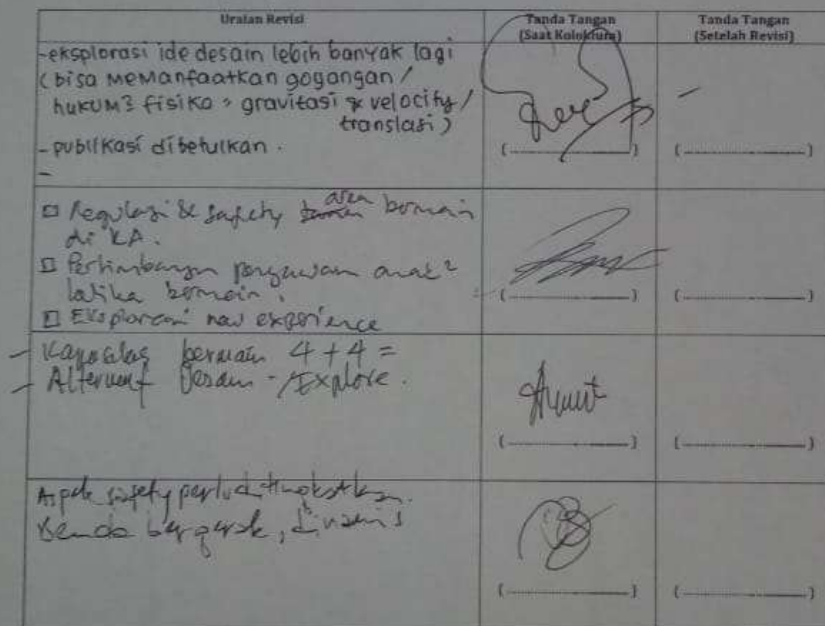 Uraian Revisi
Tanda Tangan
(Saat Kolokium)
Tanda Tangan
(Setelah Revisi)
-eksplorasi ide desain lebih banyak lagi
(bisa memanfaatkan gogangan /
hukum² fisika = gravitasi & velocity /
translasi)
- publikasi dibetulkan.
-
(....................)
(....................)
□ Regulasi & safety area bermain
di KA.
□ Pertimbangan pengawasan anak²
ketika bermain.
□ Eksplorasi new experience
(....................)
(....................)
- Kapasitas bermain 4+4=
- Alternatif Desain - /Explore.
(....................)
(....................)
Aspek safety perlu ditingkatkan.
Benda bergerak, dinamis
(....................)
(....................)